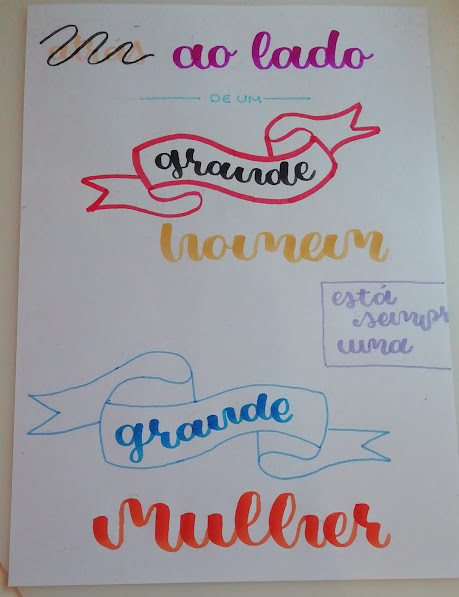 atrás ao lado
DE UM
grande
homem
está
sempr
uma
grande
mulher